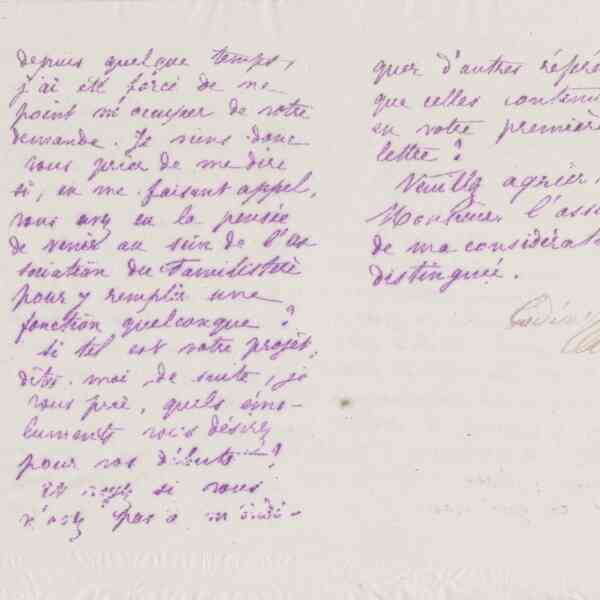 depuis quelque temps,
j'ai été forcé de ne
point m'occuper de votre
demande. Je viens donc
vous prier de me dire
si, en me faisant appel,
vous avez eu la pensée
de venir au sein de l'as
sociation du Familistère
pour y remplir une
fonction quelconque ?
Si tel est votre projet,
dites-moi de suite, je
vous prie, quels émo-
luments vous désirez
pour vos débuts ?
Et voyez si vous
n'avez pas à m'indi-
quer d'autres référe
que celles contenu
en votre première
lettre ?
Veuillez agréer,
Monsieur, l'ass
de ma considérat
distinguée.
Godin